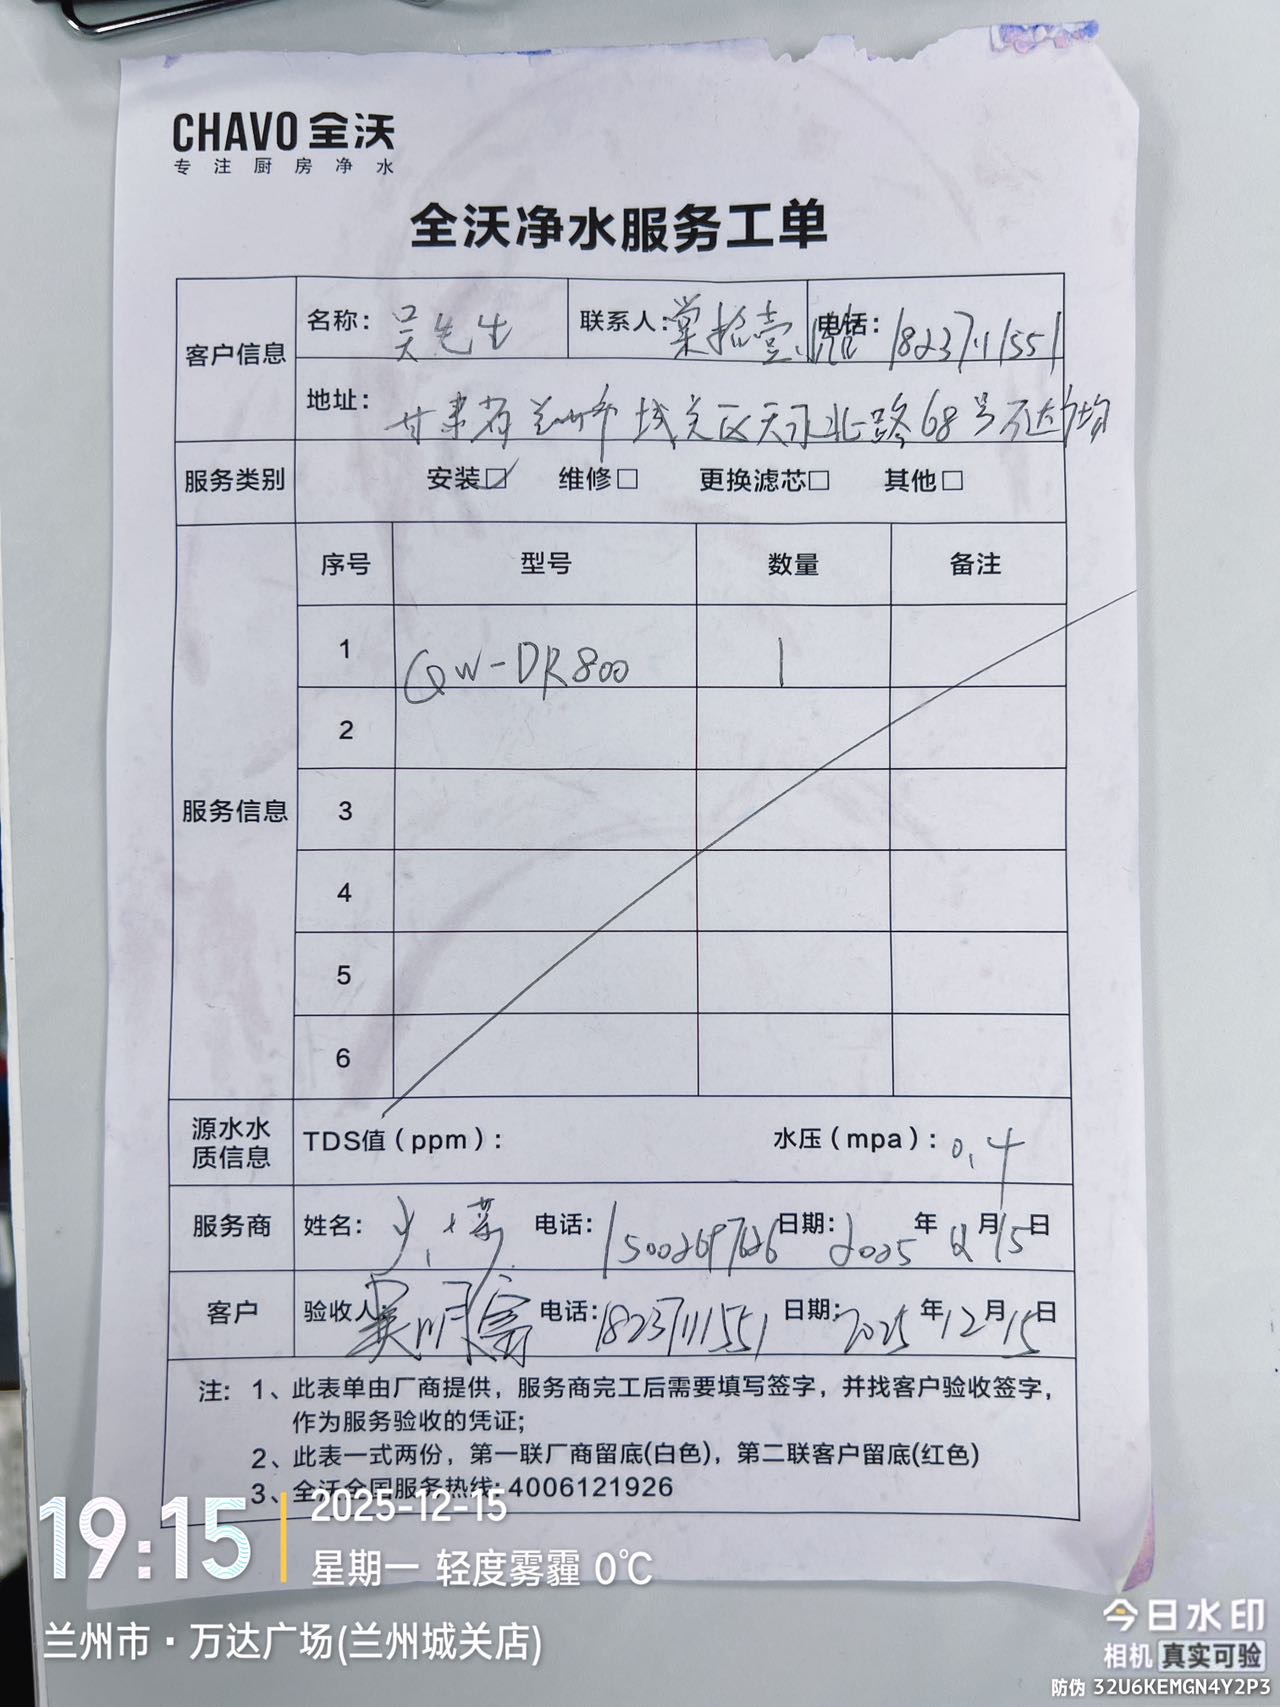 CHAVO 全沃
专注厨房净水
全沃净水服务工单
客户信息 名称: 吴先生 联系人: 棠拾壹 电话: 18237111551
地址: 甘肃省兰州市城关区天水北路68号万达广场
服务类别 安装☑ 维修□ 更换滤芯□ 其他□
服务信息 序号 型号 数量 备注
1 QW-DR800 1
2
3
4
5
6
源水水质信息 TDS值(ppm): 水压(mpa): 0.4
服务商 姓名: 电话: 15002697626 日期: 2025年12月15日
客户 验收人: 吴明富 电话: 18237111551 日期: 2025年12月15日
注: 1、此表单由厂商提供，服务商完工后需要填写签字，并找客户验收签字，
作为服务验收的凭证;
2、此表一式两份，第一联厂商留底(白色)，第二联客户留底(红色)
3、全沃全国服务热线: 4006121926
19:15
2025-12-15
星期一 轻度雾霾 0℃
兰州市·万达广场(兰州城关店)
今日水印
相机 真实可验
防伪 32U6KEMGN4Y2P3